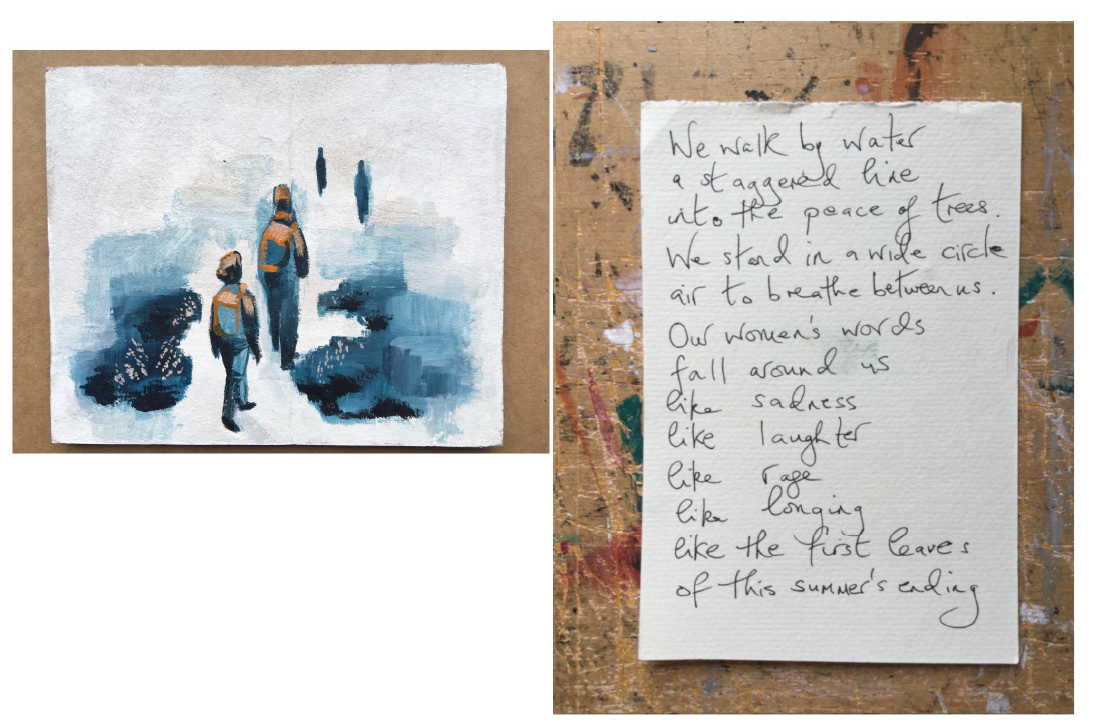 We walk by water
a staggered line
into the peace of trees.
We stand in a wide circle
air to breathe between us.
Our women's words
fall around us
like sadness
like laughter
like rage
like longing
like the first leaves
of this summer's ending